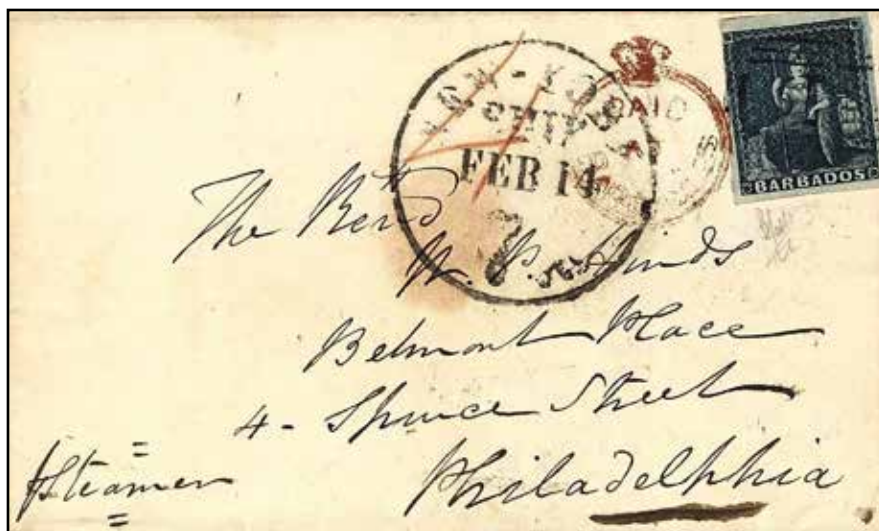 NEW-YORK
SHIP
FEB 14
7
PAID
BARBADOS
The Revd
W. P. Hinds
Belmont Place
4 - Spruce Street
Philadelphia
Steamer